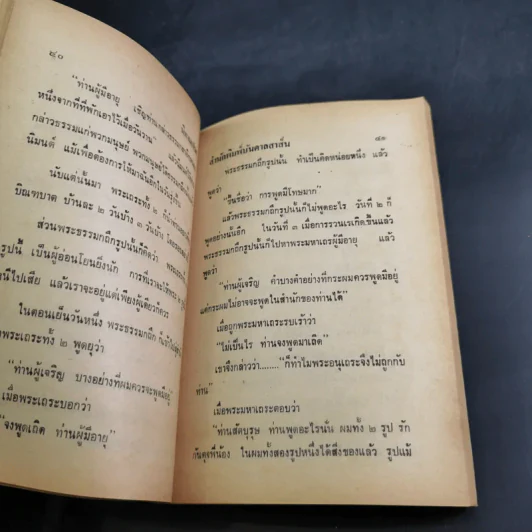 ๔๐
"ท่านผู้มีอายุ เชิญท่าน
หนึ่งจากที่ที่พักเอาไว้เมื่อวันวาน"
กล่าวธรรมแก่พวกมนุษย์ พวกมนุษย์
นิมนต์ แม้เพื่อต้องการให้มาฉันอีกในวันรุ่งขึ้น
นับแต่นั้นมา พระเถระทั้ง ๒ ก็
บิณฑบาต บ้านละ ๒ วันบ้าง ๓ วันบ้าง
ส่วนพระธรรมกถึกรูปนั้นก็คิดว่า
รูปนี้ เป็นผู้อ่อนโยนยิ่งนัก การที่เราจะ
หนีไปเสีย แล้วเราจะอยู่แต่เพียงผู้เดียวก็ควร
ในตอนเย็นวันหนึ่ง พระธรรมกถึก
พระเถระทั้ง ๒ พูดยุว่า
"ท่านผู้เจริญ บางอย่างที่ผมควรจะพูดมีอยู่"
เมื่อพระเถระบอกว่า
"จงพูดเถิด ท่านผู้มีอายุ"
๔๑
พระธรรมกถึกรูปนั้น ทำเป็นคิดหน่อยหนึ่ง แล้ว
พูดว่า
"ขึ้นชื่อว่า การพูดมีโทษมาก"
แล้วพระธรรมกถึกรูปนั้นก็ไม่พูดอะไร วันที่ ๒ ก็
พูดอย่างนั้นอีก ในวันที่ ๓ เมื่อการรวนเรเกิดขึ้นแล้ว
พระธรรมกถึกรูปนั้นก็ไปหาพระมหาเถรผู้มีอายุ แล้ว
พูดว่า
"ท่านผู้เจริญ คำบางคำอย่างที่กระผมควรพูดมีอยู่
แต่กระผมไม่อาจจะพูดในสำนักของท่านได้"
เมื่อถูกพระมหาเถระรบเร้าว่า
"ไม่เป็นไร ท่านจงพูดมาเถิด"
เขาจึงกล่าวว่า......."ก็ทำไมพระอนุเถระจึงไม่ถูกกับ
ท่าน"
เมื่อพระมหาเถระตอบว่า
"ท่านสัตบุรุษ ท่านพูดอะไรนั่น ผมทั้ง ๒ รูป รัก
กันดุจพี่น้อง ในผมทั้งสองรูปหนึ่งได้สิ่งของแล้ว รูปแม้